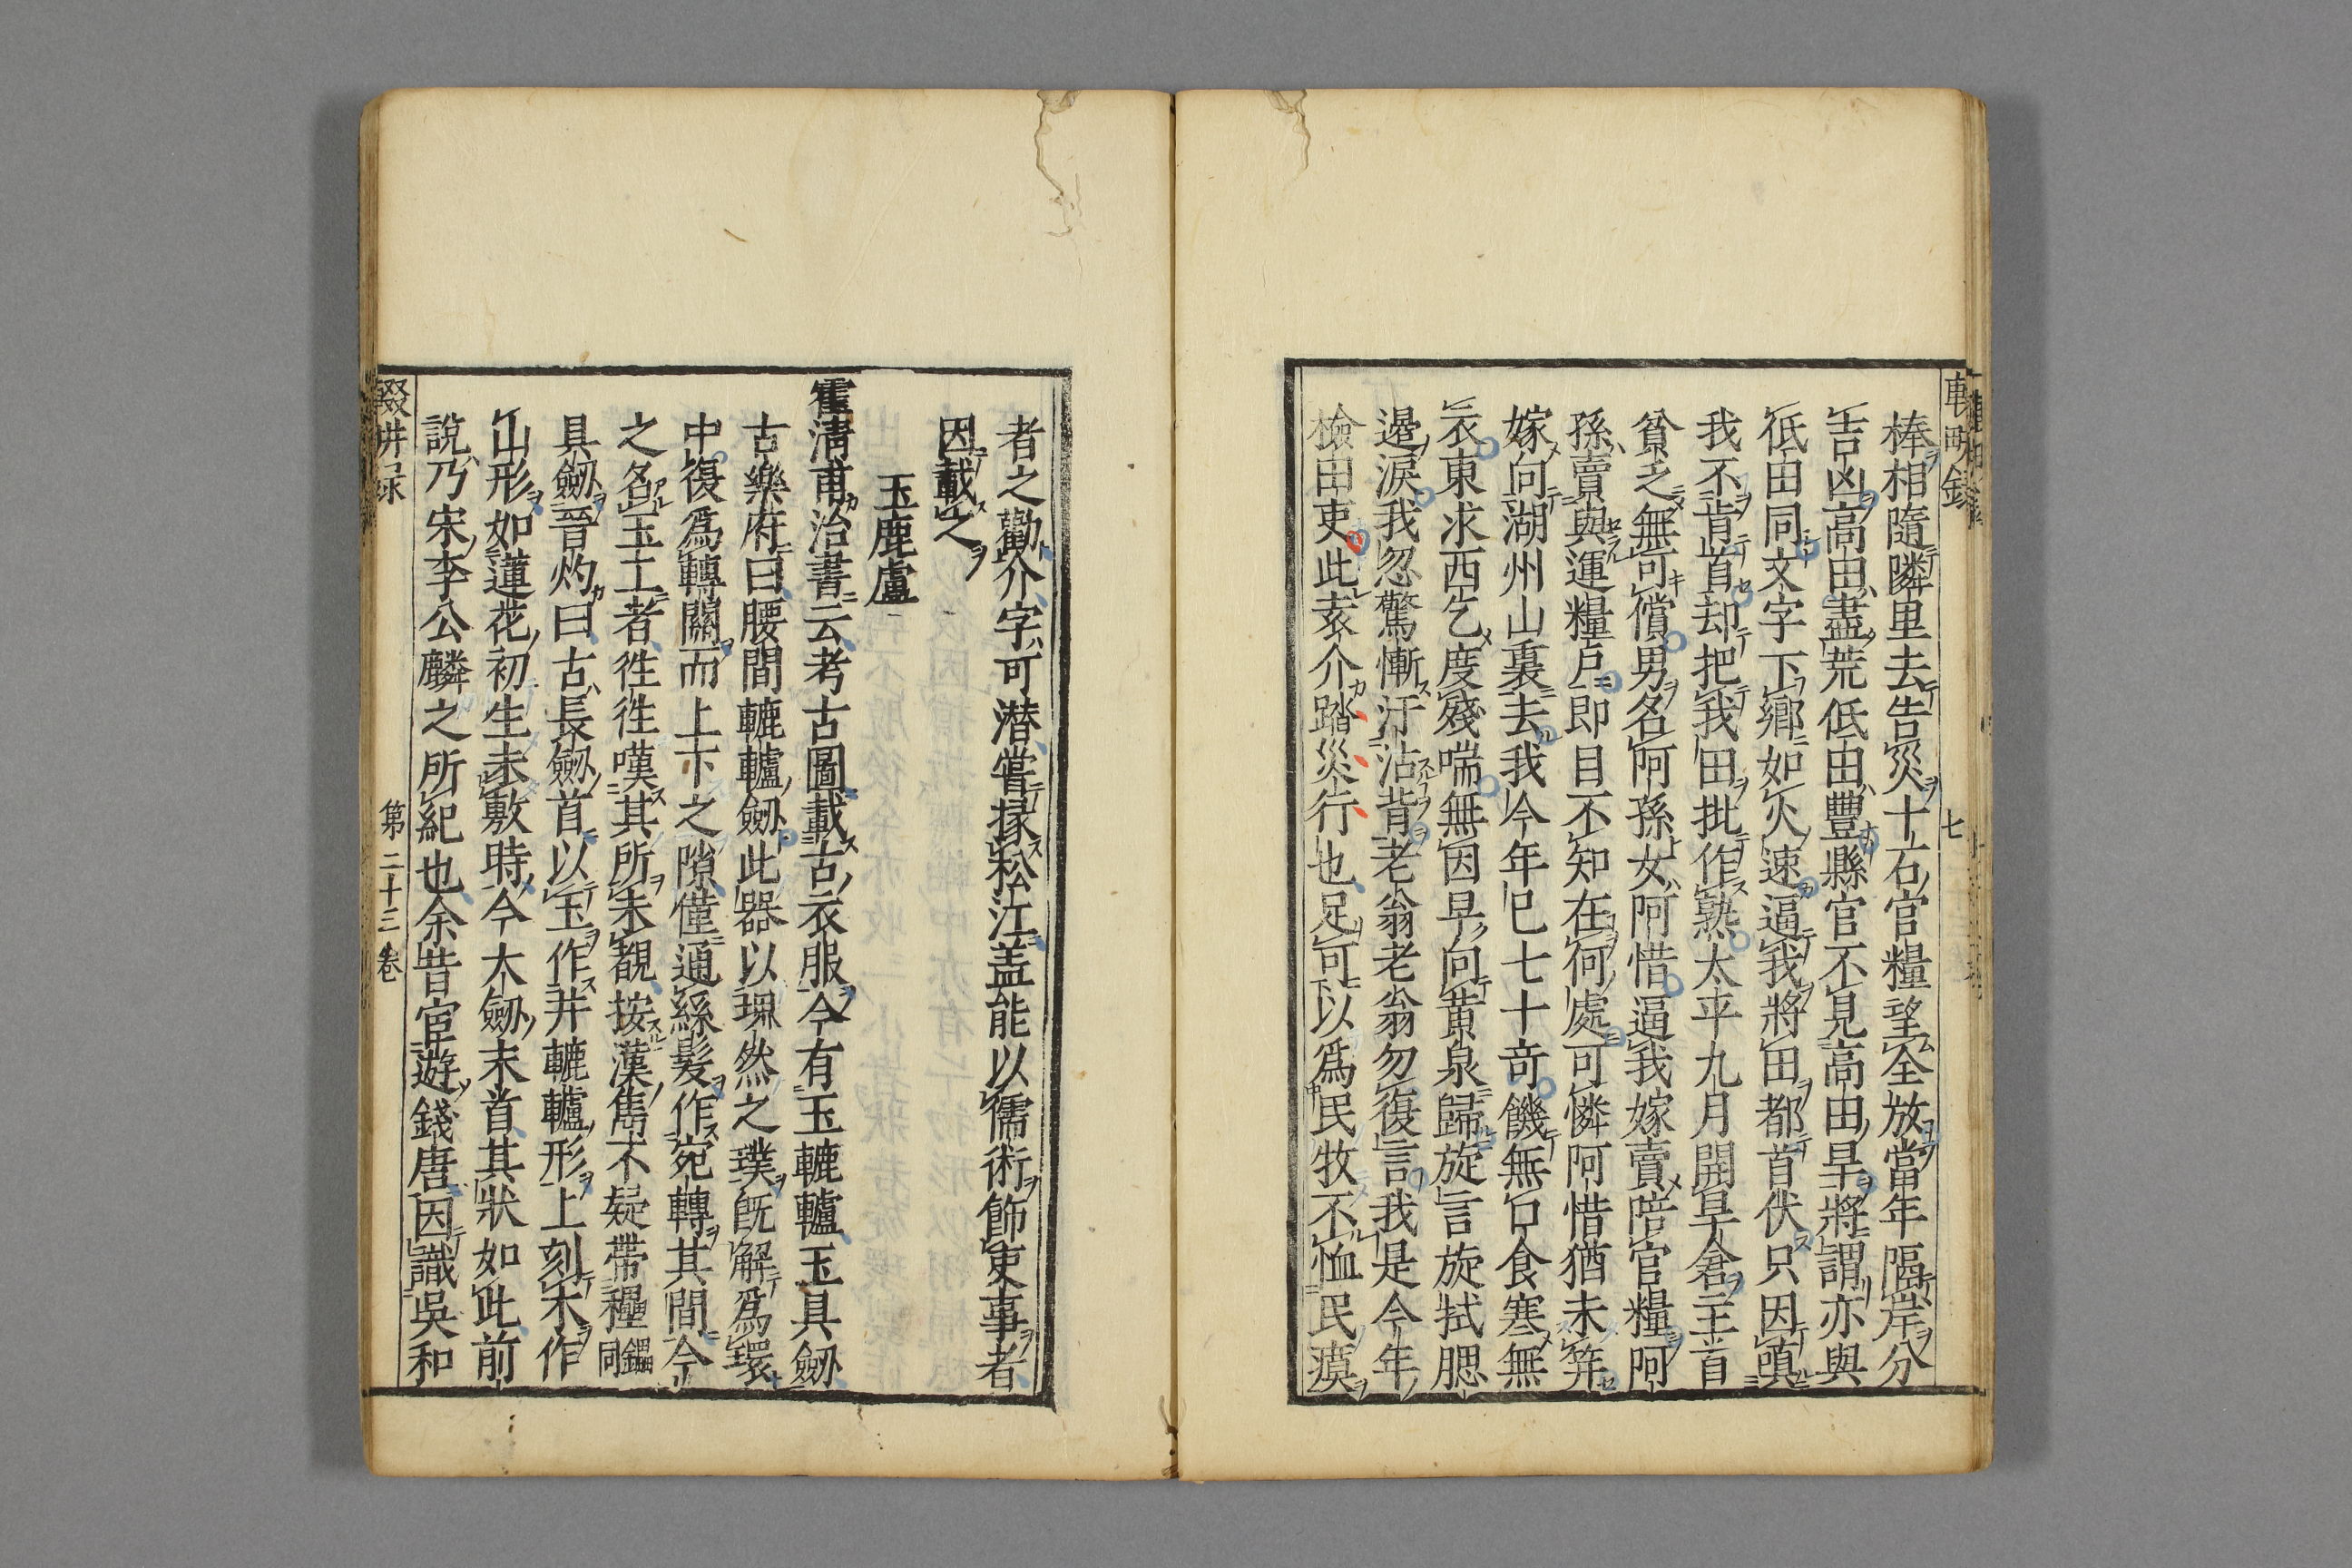 棒相隨隣里去告災十石官糧望全放當年隔岸分
吉凶高田盡荒低田豐縣官不見高田旱將謂亦與
低田同文字下鄉如火速逼我將田都首伏只因嗔
我不肯首却把我田批作熟太平九月開旱倉主首
貧乏無可償男名阿孫女阿惜逼我嫁賣陪官糧阿
孫賣與運糧戶即目不知在何處可憐阿惜猶未笄
嫁向湖州山裏去我今年已七十竒饑無口食寒無
衣東求西乞度殘喘無因早向黃泉歸旋言旋拭腮
邊淚我忽驚慚汗沾背老翁老翁勿復言我是今年
檢田吏此袁介踏災行也足可以爲民牧不恤民瘼
者之勸介字可潜嘗掾松江盖能以儒術飾吏事者
因載之
玉鹿盧
霍清甫治書云考古圖載古衣服今有玉轆轤玉具劒
古樂府曰腰間轆轤劒此器以塊然之璞旣解爲環
中復爲轉關而上下之隙僅通絲髮作宛轉其間今
之名玉工者徃徃嘆其所未覩按漢雋不疑帶櫑具劒
具劒晉灼曰古長劒首以玉作井轆轤形上刻木作
山形如蓮花初生未敷時今大劒末首其狀如此前
說乃宋李公麟之所紀也余昔宦遊錢唐因識吳和
輟耕录
第二十三卷